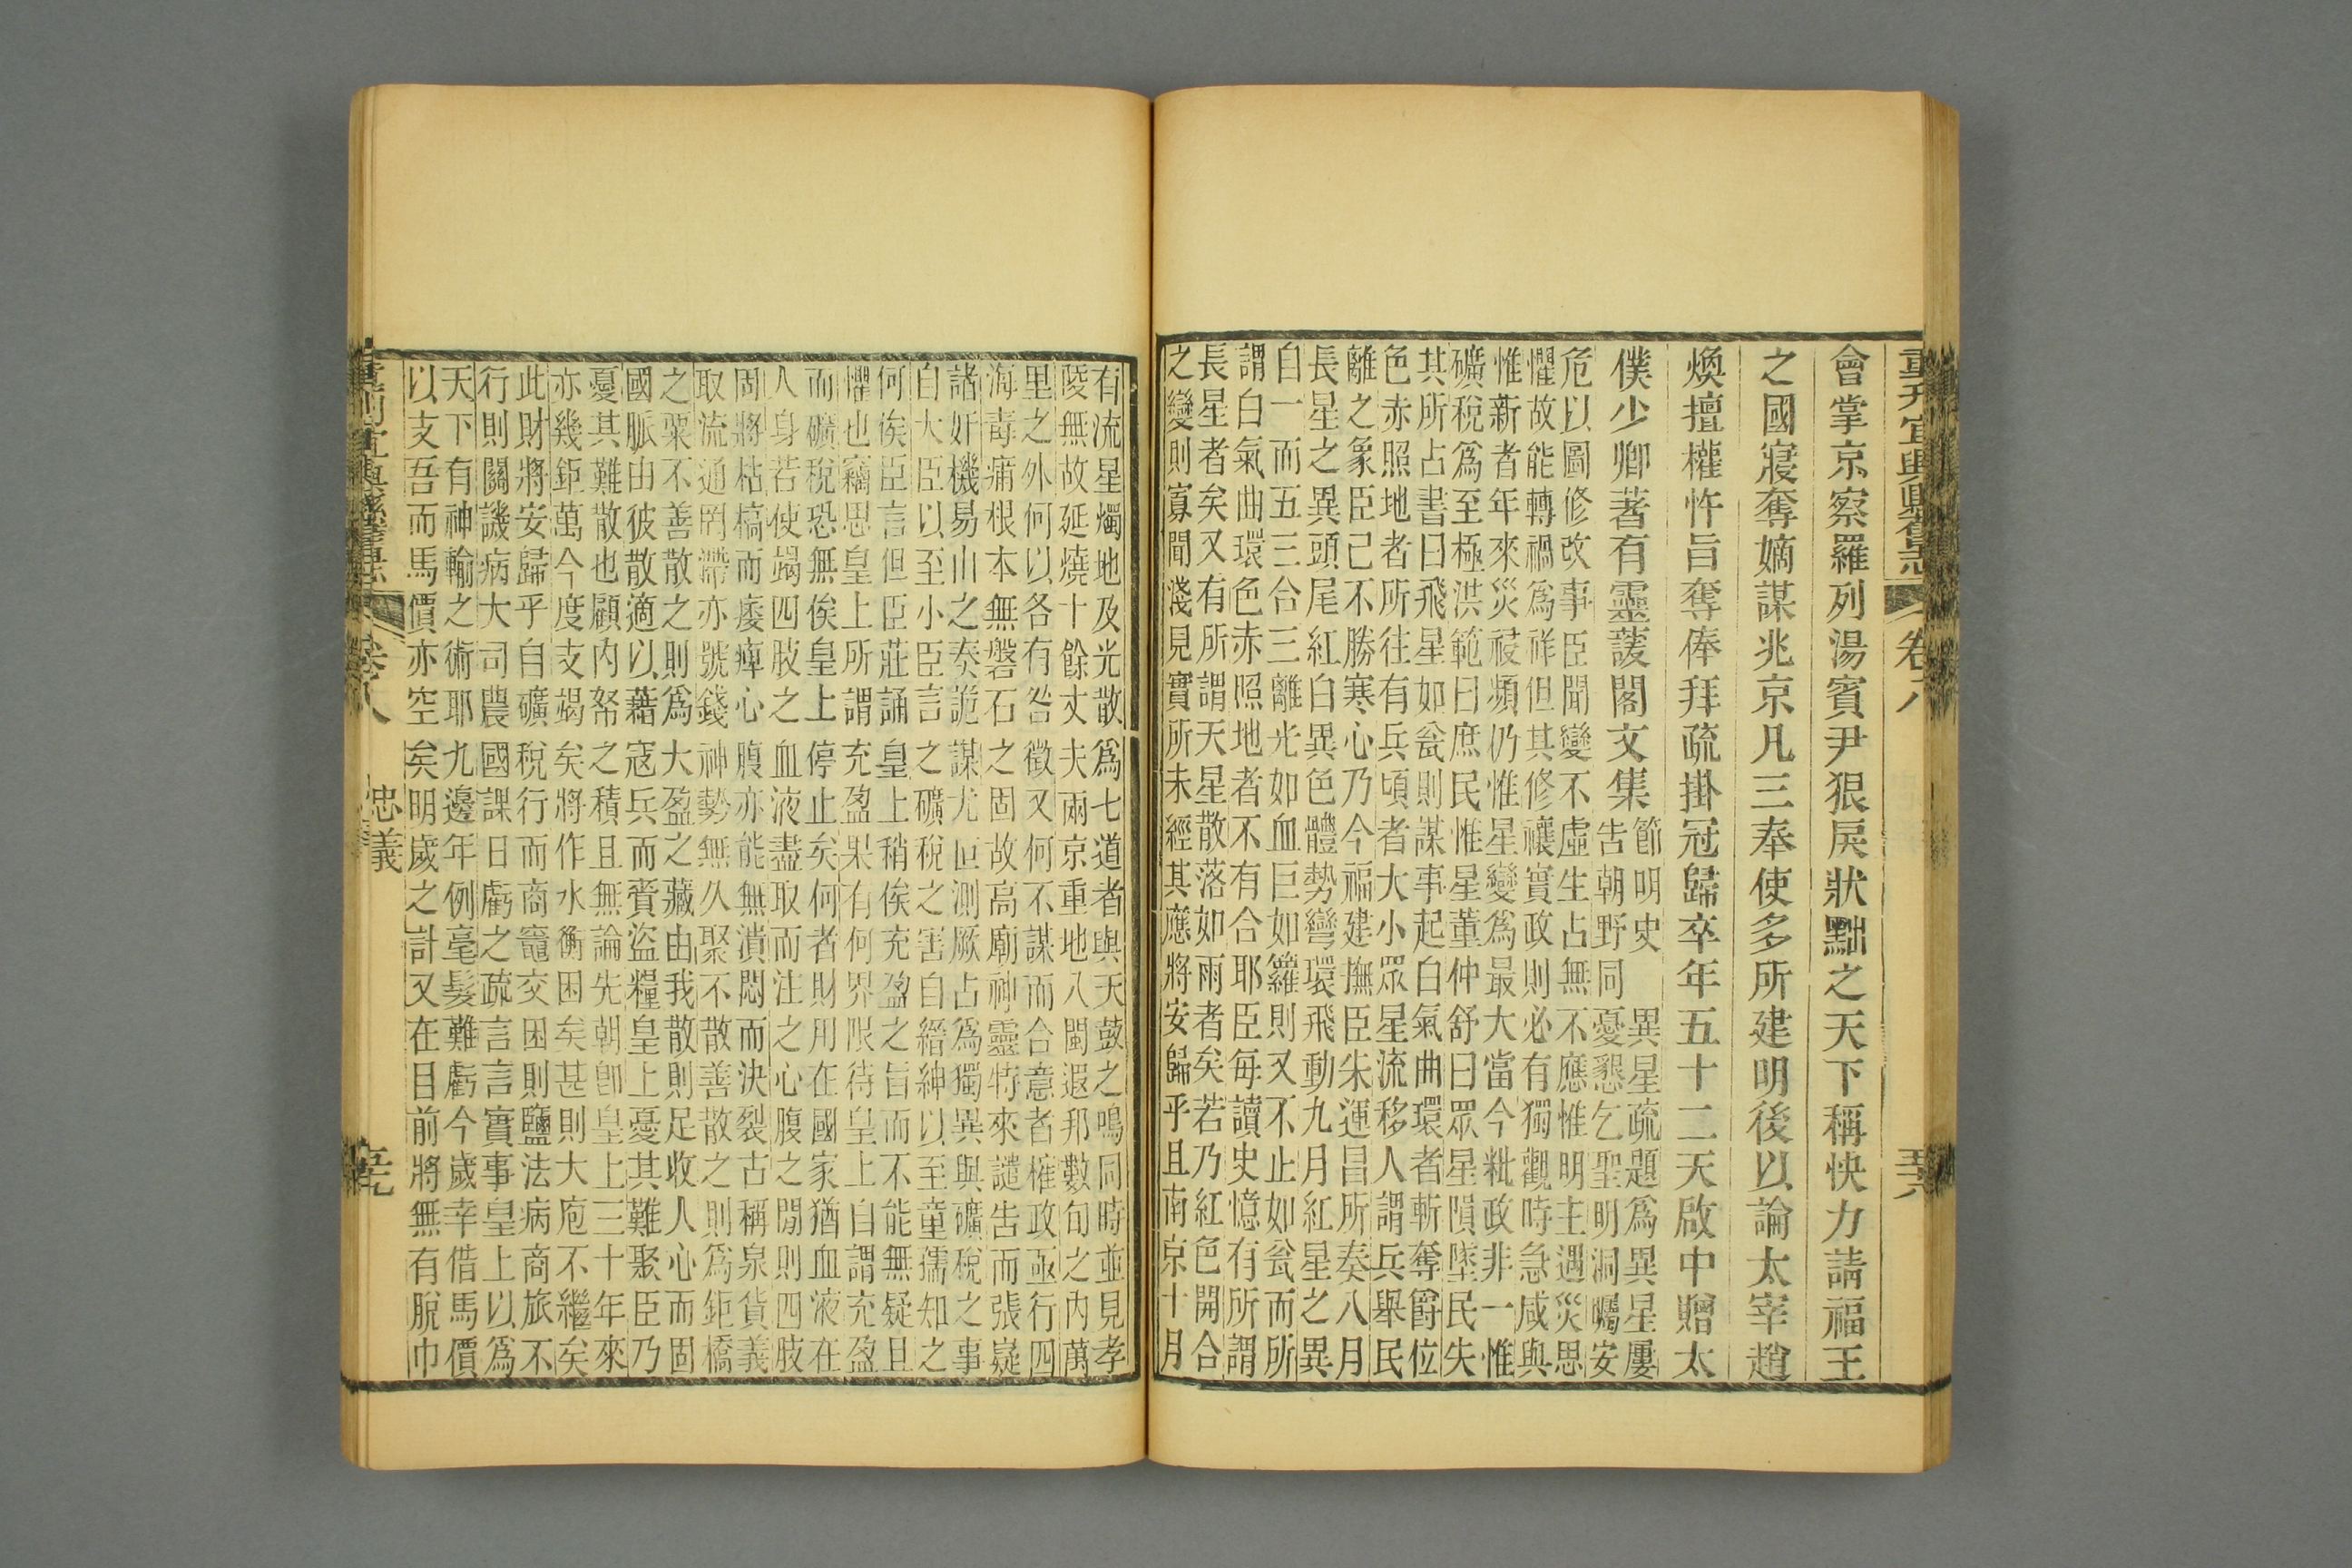 重刋宜興縣舊志 卷八 五十八
會掌京察羅列湯賓尹狠戾狀黜之天下稱快力請福王
之國寢奪嫡謀兆京凡三奉使多所建明後以論太宰趙
煥擅權忤旨奪俸拜疏掛冠歸卒年五十二天啟中贈太
僕少卿著有靈蘐閣文集
節明史 異星疏題爲異星屢
吿朝野同憂懇乞聖明洞矚安
危以圖修攺事臣聞變不虛生占無不應惟明主遇災思
懼故能轉禍爲祥但其修禳實政則必有獨觀時急咸與
惟新者年來災祲頻仍惟星變爲最大當今粃政非一惟
礦稅爲至極洪範曰庶民惟星董仲舒曰眾星隕墜民失
其所占書曰飛星如瓮則謀事起白氣曲環者斬奪爵位
色赤照地者所往有兵頃者大小眾星流移人謂兵舉民
離之象臣己不勝寒心乃今福建撫臣朱運昌所奏八月
長星之異頭尾紅白異色體勢彎環飛動九月紅星之異
自一而五三合三離光如血巨如籮則又不止如瓮而所
謂白氣曲環色赤照地者不有合耶臣每讀史憶有所謂
長星者矣又有所謂天星散落如雨者矣若乃紅色開合
之變則寡聞淺見實所未經其應將安歸乎且南京十月
有流星燭地及光散爲七道者與天鼓之鳴同時並見孝
陵無故延燒十餘丈夫兩京重地八閩遐邦數旬之內萬
里之外何以各有咎徵又何不謀而合意者榷政亟行四
海毒痡根本無磐石之固故高廟神靈特來譴吿而張嶷
諸奸機易山之奏詭謀尤叵測厥占爲獨異與礦稅之事
自大臣以至小臣言之礦稅之害自縉紳以至童孺知之
何俟臣言但臣莊誦皇上稍俟充盈之旨而不能無疑且
懼也竊思皇上所謂充盈果有何界限待皇上自謂充盈
而礦稅恐無俟皇上停止矣何者財用在國家猶血液在
人身若使竭四肢之血液盡取而注之心腹之閒則四肢
固將枯槁而痿痺心腹亦能無潰悶而決裂古稱泉貨義
取流通罔滯亦號錢神勢無久聚不散善散之則爲鉅橋
之粟不善散之則爲大盈之藏由我散則足收人心而固
國脈由彼散適以藉寇兵而賫盜糧皇上憂其難聚臣乃
憂其難散也顧內帑之積且無論先朝卽皇上三十年來
亦幾鉅萬今度支竭矣將作水衡困矣甚則大庖不繼矣
此財將安歸乎自礦稅行而商竈交困則鹽法病商旅不
行則關譏病大司農國課日虧之疏言言實事皇上以爲
天下有神輸之術耶九邊年例毫髮難虧今歲幸借馬價
以支吾而馬價亦空矣明歲之計又在目前將無有脫巾
重刊宜興縣舊志 卷八 忠義 五十九